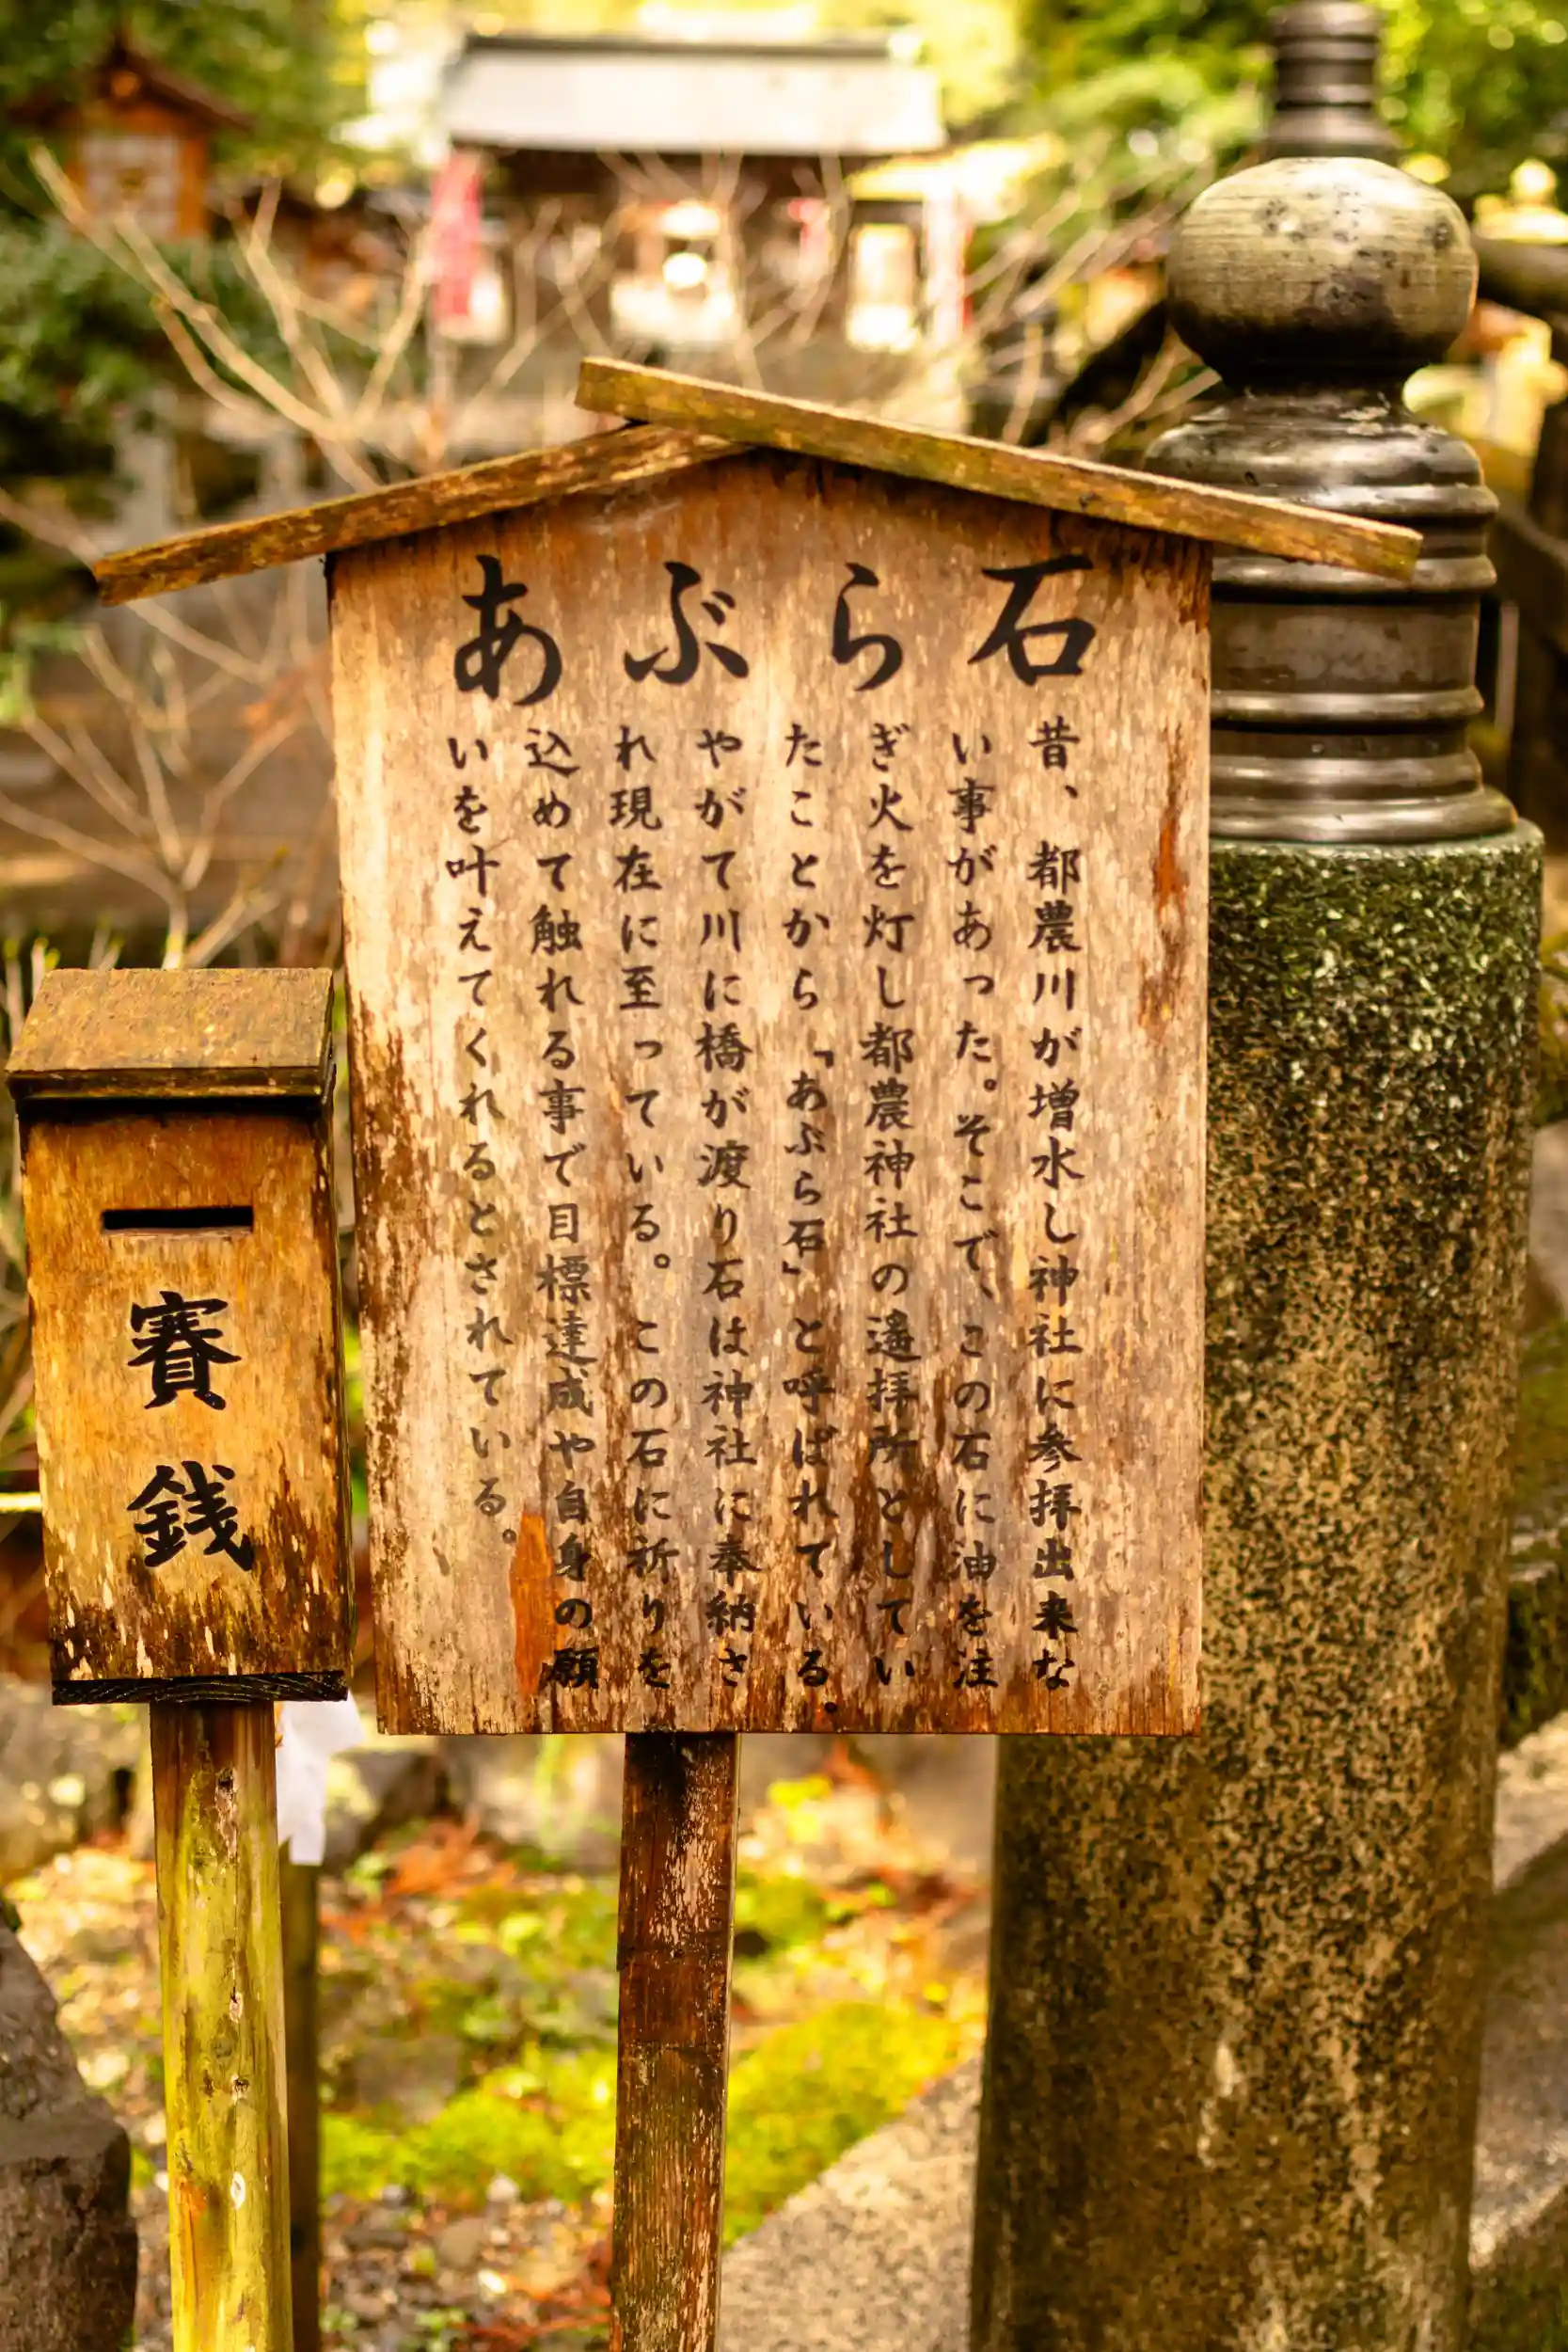 あぶら石
昔、都農川が増水し神社に参拝出来な
い事があった。そこで、この石に油を注
ぎ火を灯し都農神社の遥拝所としてい
たことから「あぶら石」と呼ばれている。
やがて川に橋が渡り石は神社に奉納さ
れ現在に至っている。この石に祈りを
込めて触れる事で目標達成や自身の願
いを叶えてくれるとされている。
賽銭